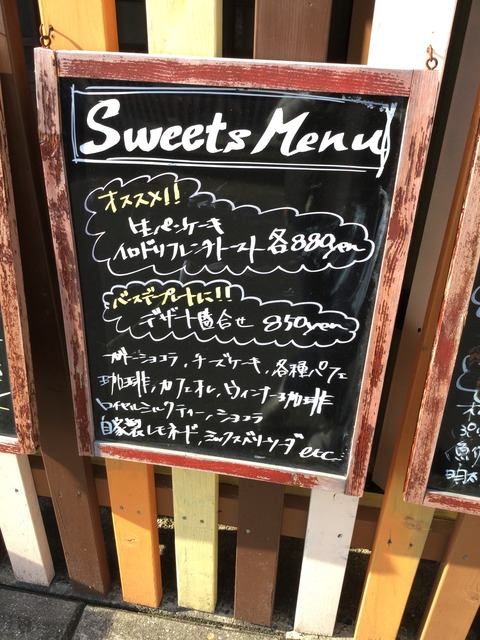 Sweets Menu
オススメ!!
生パンケーキ
イロドリフレンチトースト 各880yen
バースデープレートに!!
デザート盛合せ 850yen
ガトーショコラ、チーズケーキ、各種パフェ
珈琲、カフェオレ、ウィンナー珈琲
ロイヤルミルクティー、ショコラ
自家製レモネード、ミックスベリーソーダ etc...